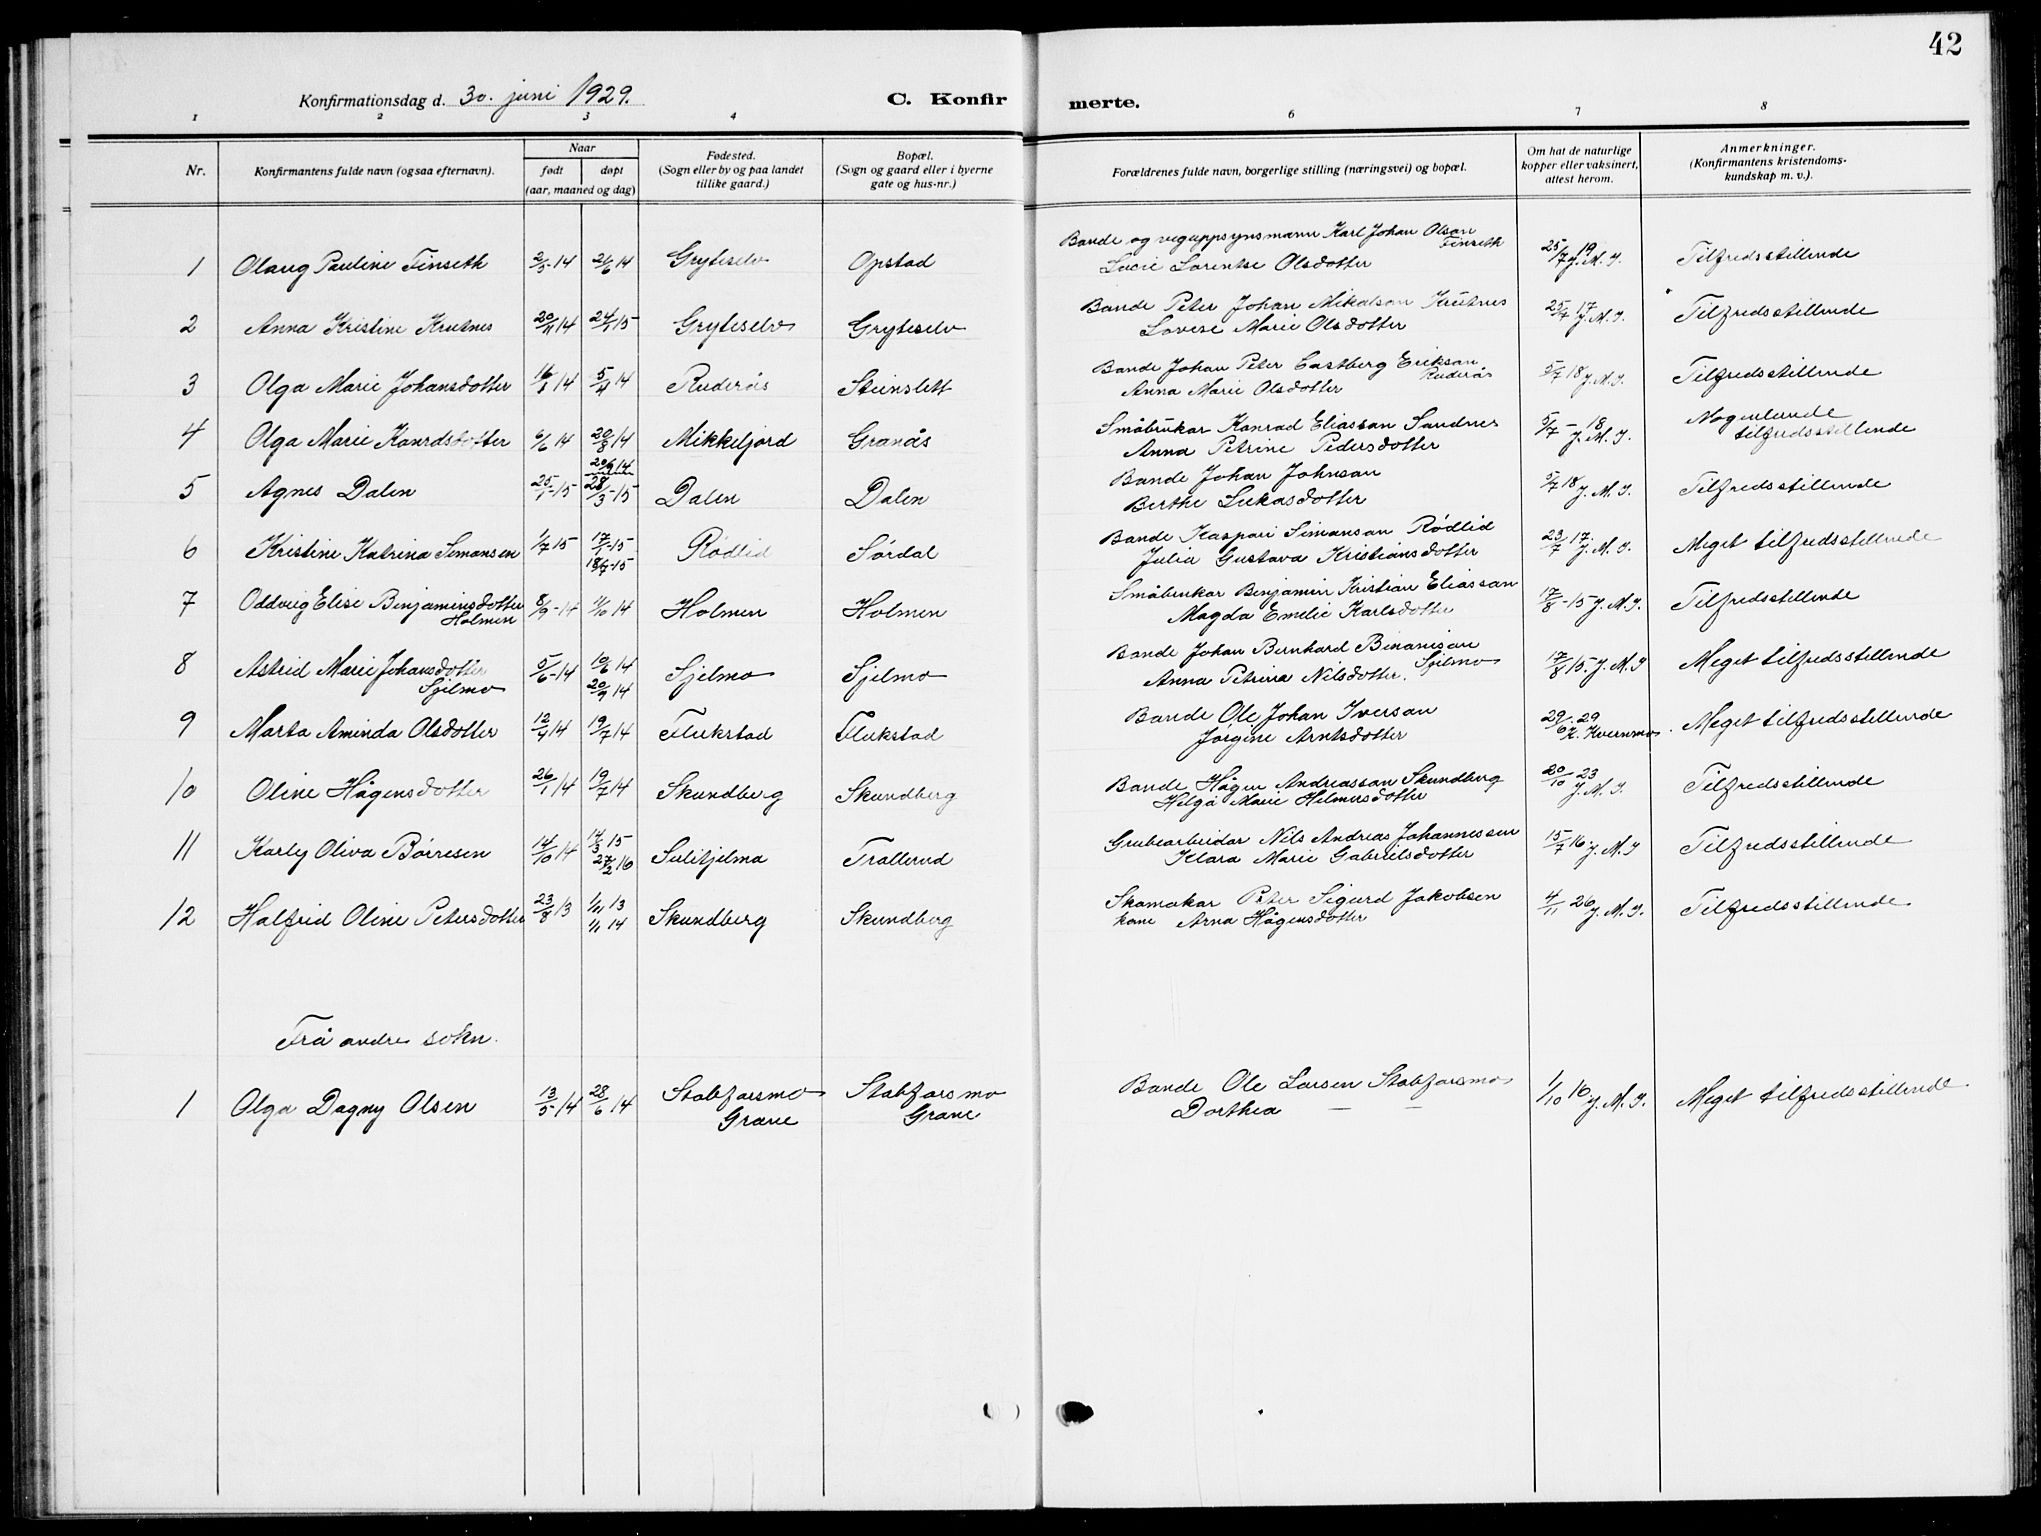 42
Konfirmationsdag d. 30. juni 1929.
C. Konfirmerte.
1 2 3 4 6 7 8
Nr.
Konfirmantens fulde navn (ogsaa efternavn).
Naar
født døpt
(aar, maaned og dag)
Fødested.
(Sogn eller by og paa landet
tillike gaard.)
Bopæl.
(Sogn og gaard eller i byerne
gate og hus-nr.)
Forældrenes fulde navn, borgerlige stilling (næringsvei) og bopæl.
Om hat de naturlige
kopper eller vaksinert,
attest herom.
Anmerkninger.
(Konfirmantens kristendoms-
kundskap m. v.).
Bonde og veguppsynsmann Karl Johan Olson
Finseth
1 Olaug Pauline Finseth 2/5-14 21/6 14 Gryteselv Opstad Lovie Lorentse Olsdotter 25/7 19 J.M.I. Tilfredsstillende
Bonde Peter Johan Mikalson Krutnes
2 Anna Kristine Krutnes 20/11 14 24/1 15 Gryteselv Gryteselv Lovise Marie Olsdotter 25/7 17 J.M.I. Tilfredsstillende
Bonde Johan Peter Castberg Erikson
Ruderås
3 Olga Marie Johansdotter 16/1 14 5/4 14 Ruderås Steinslett Anna Marie Olsdotter 5/7 18 J.M.I. Tilfredsstillende
Småbrukar Konrad Eliasson Sandnes
4 Olga Marie Konrdsdotter 6/6 14 20/8 14 Mikkeljord Granås Anna Petrine Pedersdotter 5/7 - 18 J.M.I. Nogenlunde
tilfredsstillende
20/9 14
Bonde Johan Johnsan
5 Agnes Dalen 25/1-15 28/3-15 Dalen Dalen Berthe Lukasdotter 5/7 18 J.M.I. Tilfredsstillende
Bonde Kaspari Simonson Rødlid
6 Kristine Katrina Simonsen 1/7 15 17/1-15 Rødlid Sørdal Julia Gustava Kristiansdotter 23/7 17. J.M.I. Meget tilfredsstillende
18/7-15
Småbrukar Benjamin Kristian Eliasson
7 Oddveig Elise Benjaminsdotter 8/9-14 11/10 14 Holmen Holmen Magda Emelie Karlsdotter 17/8-15 J.M.I. Tilfredsstillende
Holmen
Bonde Johan Bernhard Benonison
Sjelmo
8 Astrid Marie Johansdotter 5/6-14 10/6 14 Sjelmo Sjelmo Anna Petrina Nilsdotter. 17/8 15. J.M.I Meget tilfredsstillende
Sjelmo 20/9 14
Bonde Ole Johan Iverson
9 Marta Aminda Olsdotter 12/4 14 19/7 14 Flukstad Flukstad Jørgine Arntsdotter 29/6 29 K. Kvernmo. Meget tilfredsstillende
Bonde Hågen Andreasson Skundberg
10 Oline Hågensdotter 26/1 14 19/7 14 Skundberg Skundberg Helga Marie Helmersdotter 20/10 23 J.M.I. Tilfredsstillende
Grubearbeidar Nils Andreas Johannessen
11 Karly Oliva Børresen 14/10 14 14/3 15 Sulitjelma Trallerud Klara Marie Gabrielsdotter 15/7 16 J.M.I Tilfredsstillende
27/2 16
Skomakar Peter Sigurd Jakobsen
12 Halfrid Oline Petersdotter 23/8 13 1/11 13 Skundberg Skundberg kone Arna Hågensdotter 4/11 26 J.M.I. Tilfredsstillende
1/1 14
Frå andre sokn.
1 Olga Dagny Olsen 13/5-14 28/6 14 Stabforsmo Stabforsmo Bonde Ole Larsen Stabforsmo 1/10 16 J.M.I. Meget tilfredsstillende
Grane Grane Dorthea — —